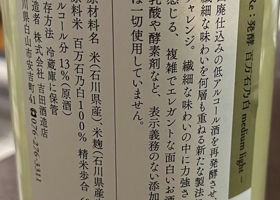 ke：発酵 百万石乃白 medium light –
廃仕込みの低アルコール酒を再発酵させ
な味わいを何層も重ねる新たな製法
ャレンジ。繊細な味わいの中に力強さ
感じる、複雑でエレガントな面白いお酒
乳酸、酵素剤など、表示義務のない添加
一切使用していません。
原材料名 米（石川県産）、米麹（石川県産
原料米 百万石乃白100% 精米歩合
アルコール分 13%（原酒）
存方法 冷蔵庫に保管
造者 株式会社 吉田酒造店
川県白山市安吉町41 ☎076-276-3311